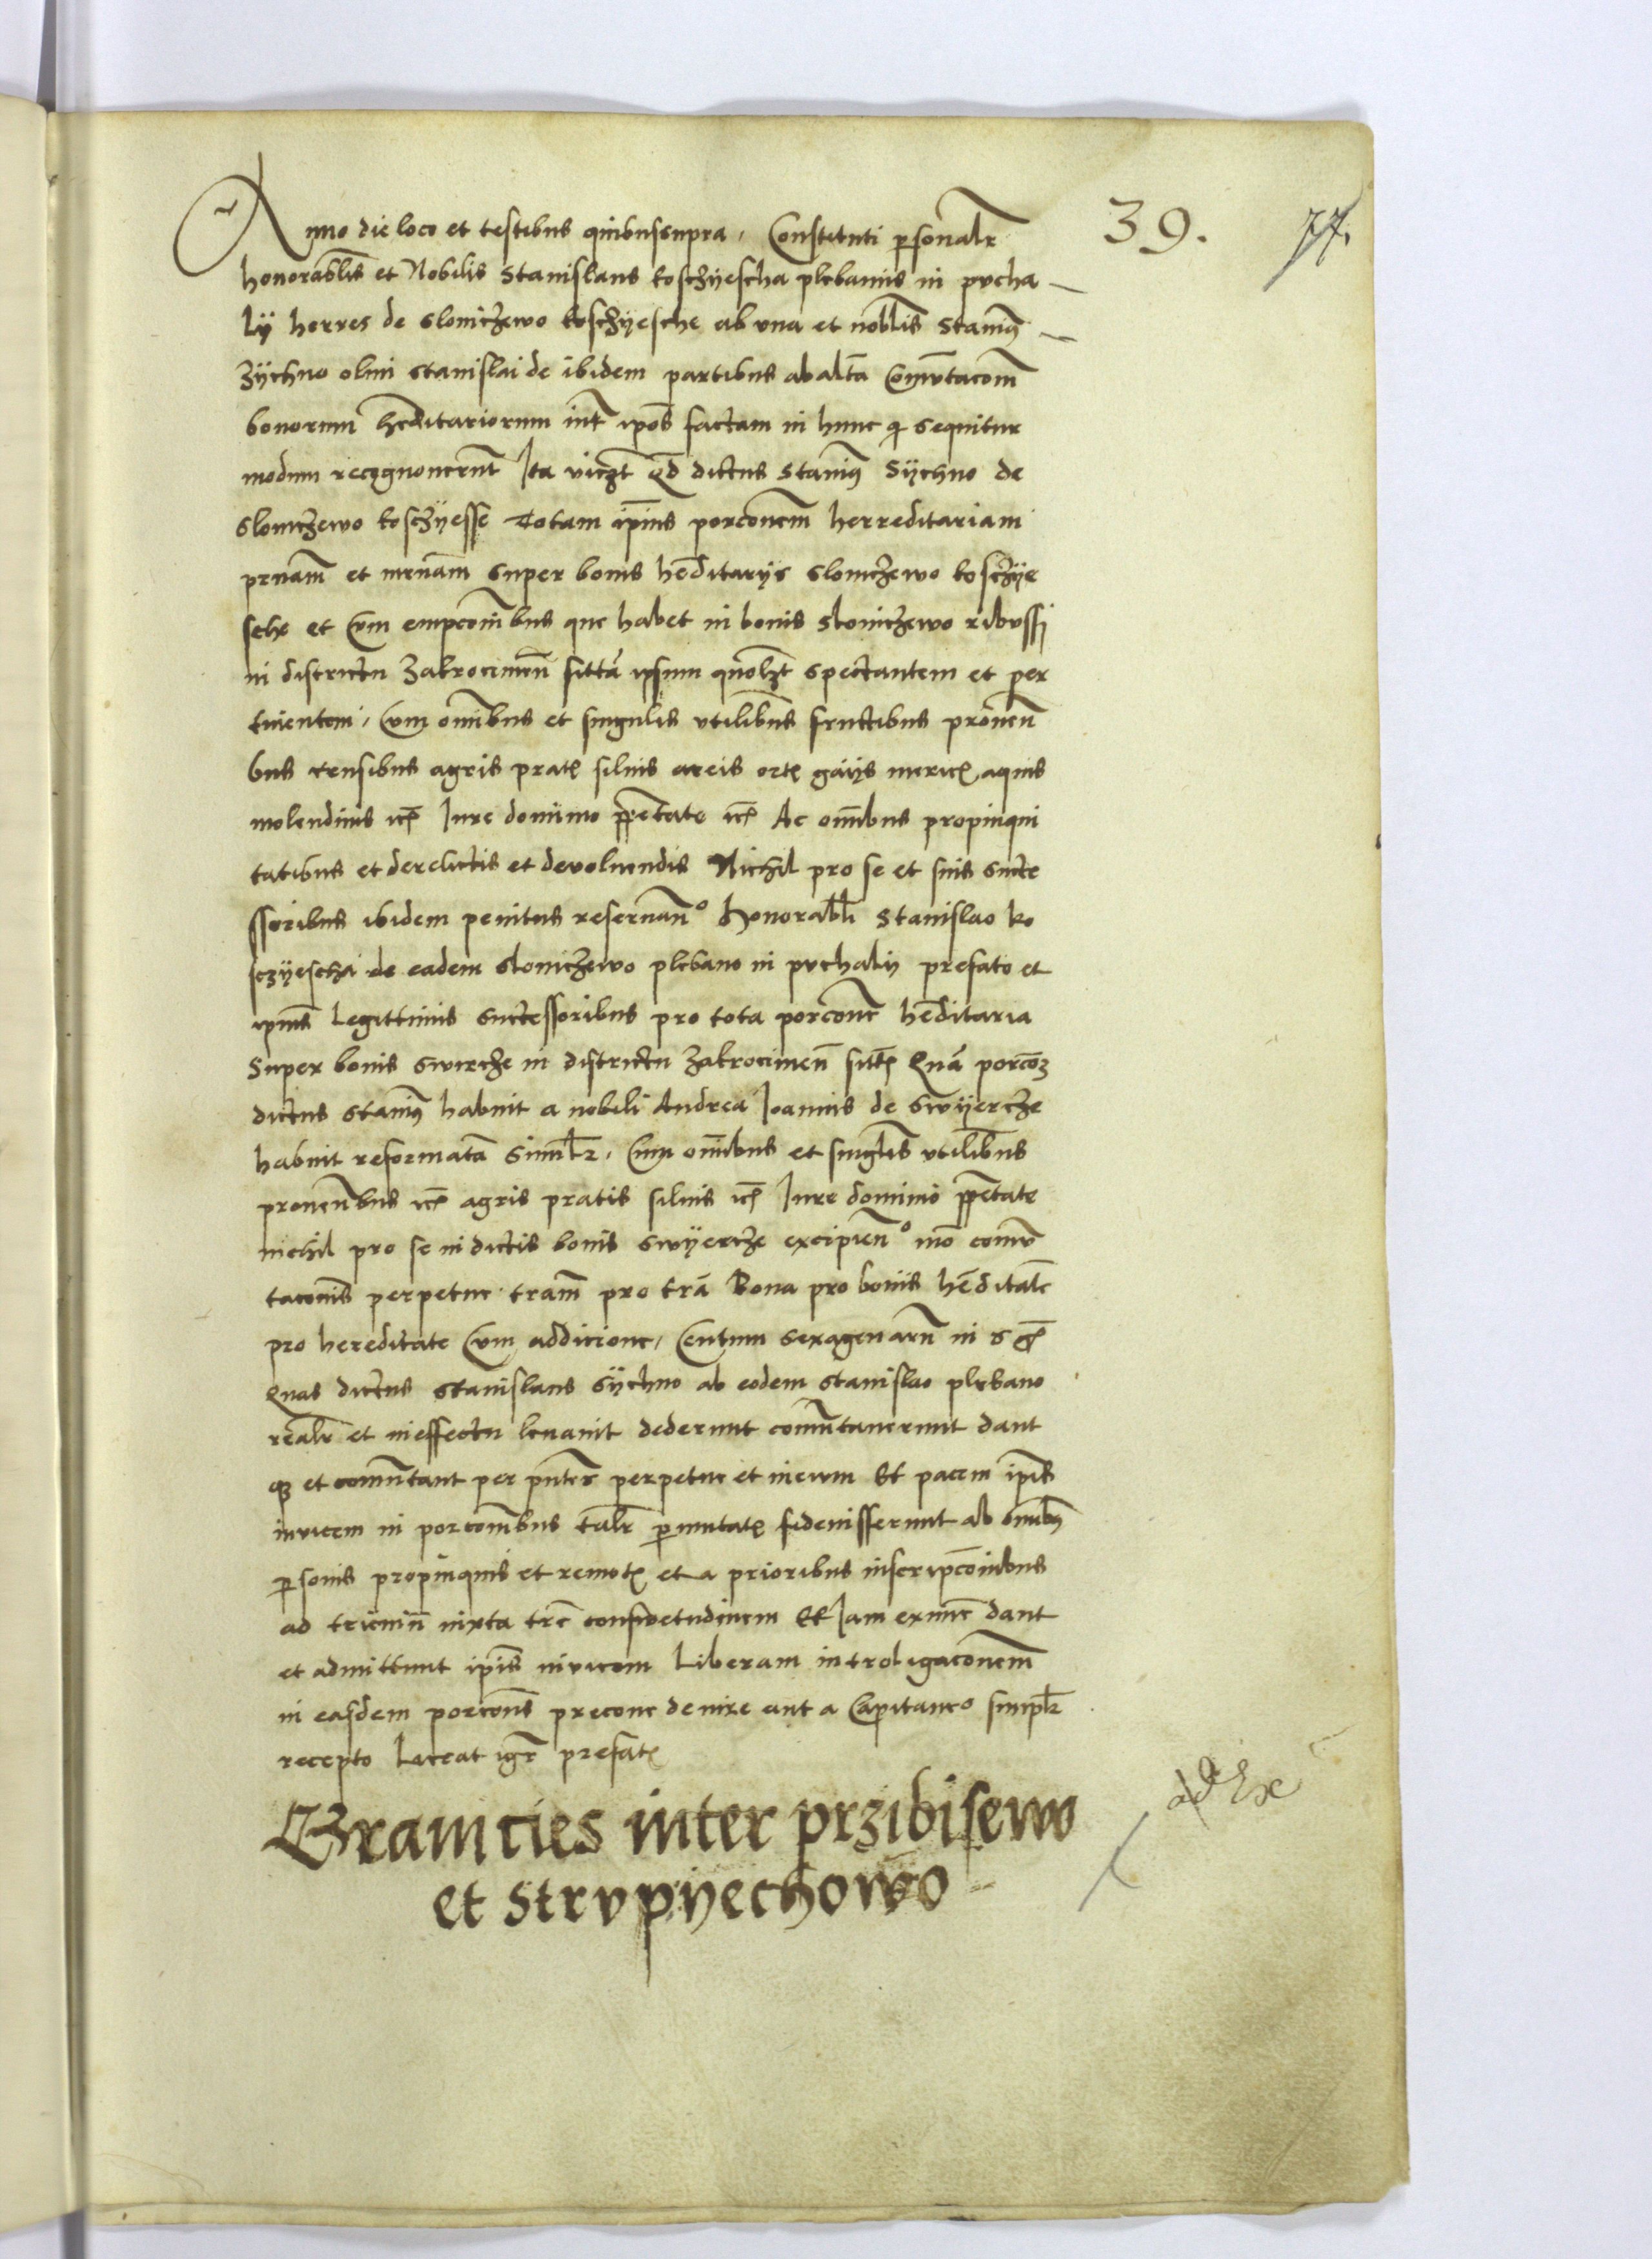 39. 77.
Anno die loco et testibus quibussupra, Constituti personalr
honorablis et Nobilis Stanislaus kosczyescha plebanus in pucha
lÿ herres de Slomczewo kosczÿesche ab una et noblis Stanis
Zÿchno olim Stanislai de ibidem partibus ab altā Comutacom
bonorum heditariorum intr ipos factam in hunc qi sequitur
modum recognouerunt Ita viczt qd dictus Stanis Sÿchno de
Slomczewo kosczÿesse Totam ipius porconem herreditariam
prnam et mrnam super bonis heditarÿs Slomczewo kosczÿe
sche et Cum empconibus que habet in bonis Slomczewo ribussi
in districtu Zakrocimen sittā ipsum quolzt spectantem et per
tinentem, Cum omibus et singulis utilibus fructibus prouen
bus censibus agris prat silvis areis ort gaÿs meric aquis
molendinis ic Iure dominio ppetate ic Ac omibus propinqui
tatibus et derelictis et devoluendis Nichil pro se et suis succe
ssoribus ibidem penitus reseruano honorabli Stanislao ko
sczÿescha de eadem Slomczewo plebano in puchalÿ prefato et
ipius Legittimis successoribus pro tota porcone heditaria
Super bonis Swircze in districtu Zakrocimen sitt Quā porcoz
dictus Stanis habuit a nobili Andrea Joannis de Swÿercze
habuit reformatā simlr, Cum omibus et singlis utilibus
prouenbus ic agris pratis silvis ic Iure dominio ppetate
nichil pro se in dictis bonis Swÿercze excipieno mo comu
taconis perpetue tram pro trā Bona pro bonis heditate
pro hereditate Cum addicione, Centum sexagenarn in s gr
Quas dictus Stanislaus Sÿchno ab eodem Stanislao plebano
realr et ineffectu levavit dederunt comutaverunt dant
qz et comutant per pntes perpetue et inevum Et pacem ipis
invicem in porconibus talr pmutat fideiusserunt ab omibus
psonis propinquis et remot et a prioribus inscripconibus
ad trienniū iuxta tre consuetudinem Et Iam exnunc dant
et admittunt ipis invicem Liberam introligaconem
in easdem porcons precone de iure aut a Capitaneo simplr
recepto Liceat igr prefat
Gramcies inter przibisewo
et Strupÿechowo